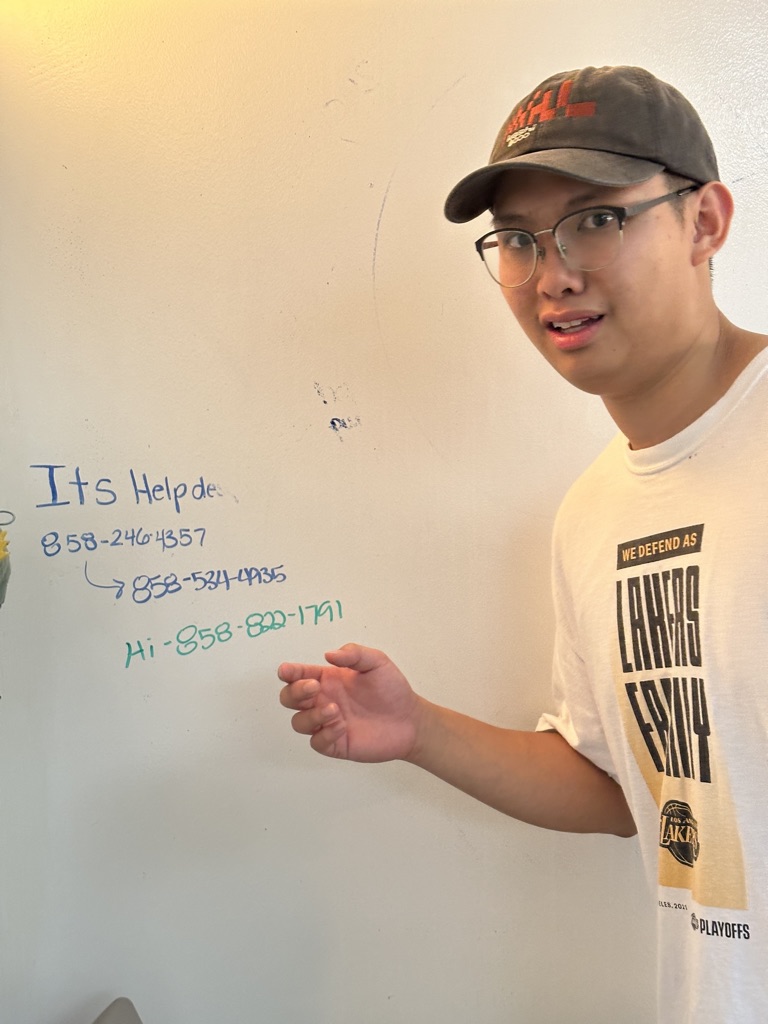 Its Helpde
858-246-4357
858-534-4935
Hi-858-822-1791
WE DEFEND AS
LAKERS
FAMILY
LOS ANGELES
LAKERS
PLAYOFFS